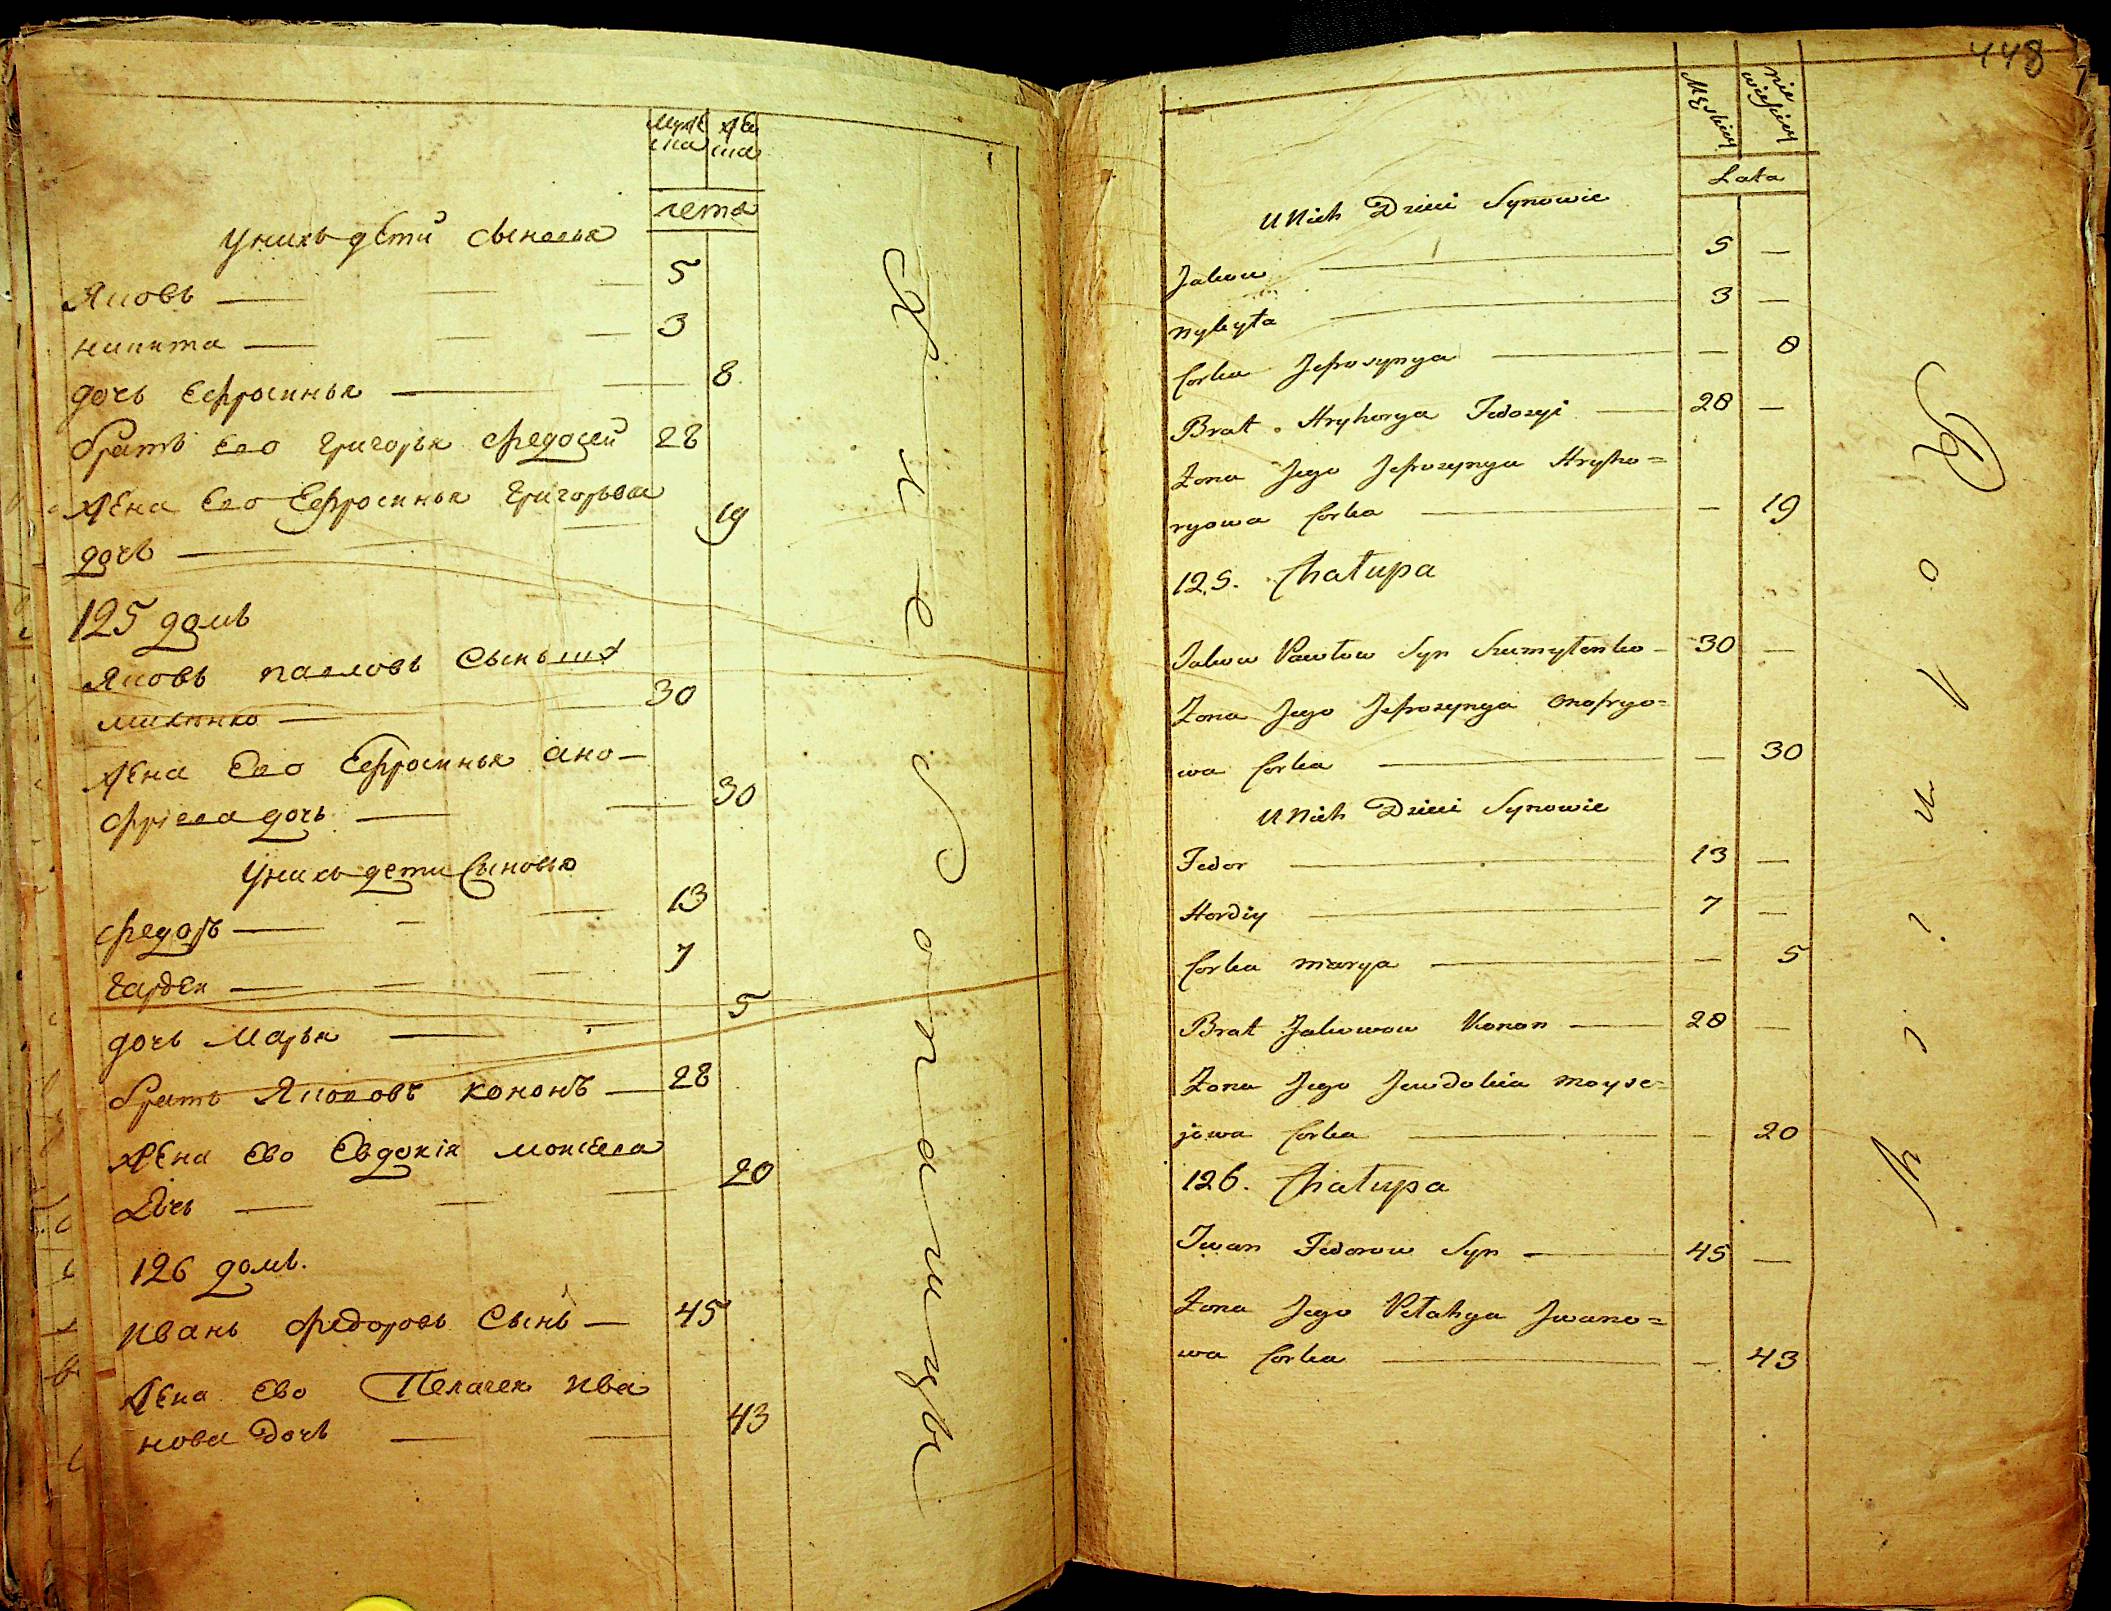 муже
ска
же
ска
лета
Унихъ дети сыновья
Яковъ
5
никита
3
дочь Ефросинья
8
братъ Ево Григорья Федосей
28
жена Ево Ефросинья Григорьева
дочь
19
125 домъ
Яковъ павловъ Сынъ
30
жена Ево Ефросинья ано-
фріева дочь
30
Унихъ дети Сыновья
Федоръ
13
Гардей
7
дочь Марья
5
братъ Якововъ кононъ
28
жена Ево Евдокія моисеева
Дочь
20
126 домъ.
Иванъ Федоровъ Сынъ
45
жена Ево Пелагея Ива
нова Дочь
43
448
Męskiey
nie
wieściey
Lata
U Nich Dzieci Synowie
Jakow 5 —
Nykyta 3 —
Corka Jefrosynya — 8
Brat Hryhorya Fedosyi 28 —
Zona Jego Jefrosynya Hryho=
ryowa Corka — 19
125. Chałupa
Jakow Pawłow Syn Szumytenko 30 —
Zona Jego Jefrosynya Onofryo=
wa Corka — 30
U Nich Dzieci Synowie
Fedor 13 —
Hordiy 7 —
Corka Marya — 5
Brat Jakowow Konon 28 —
Zona Jego Jewdokia Moyse=
jowa Corka — 20
126. Chałupa
Iwan Fedorow Syn 45 —
Zona Jego Pełahya Iwano=
wa Corka — 43